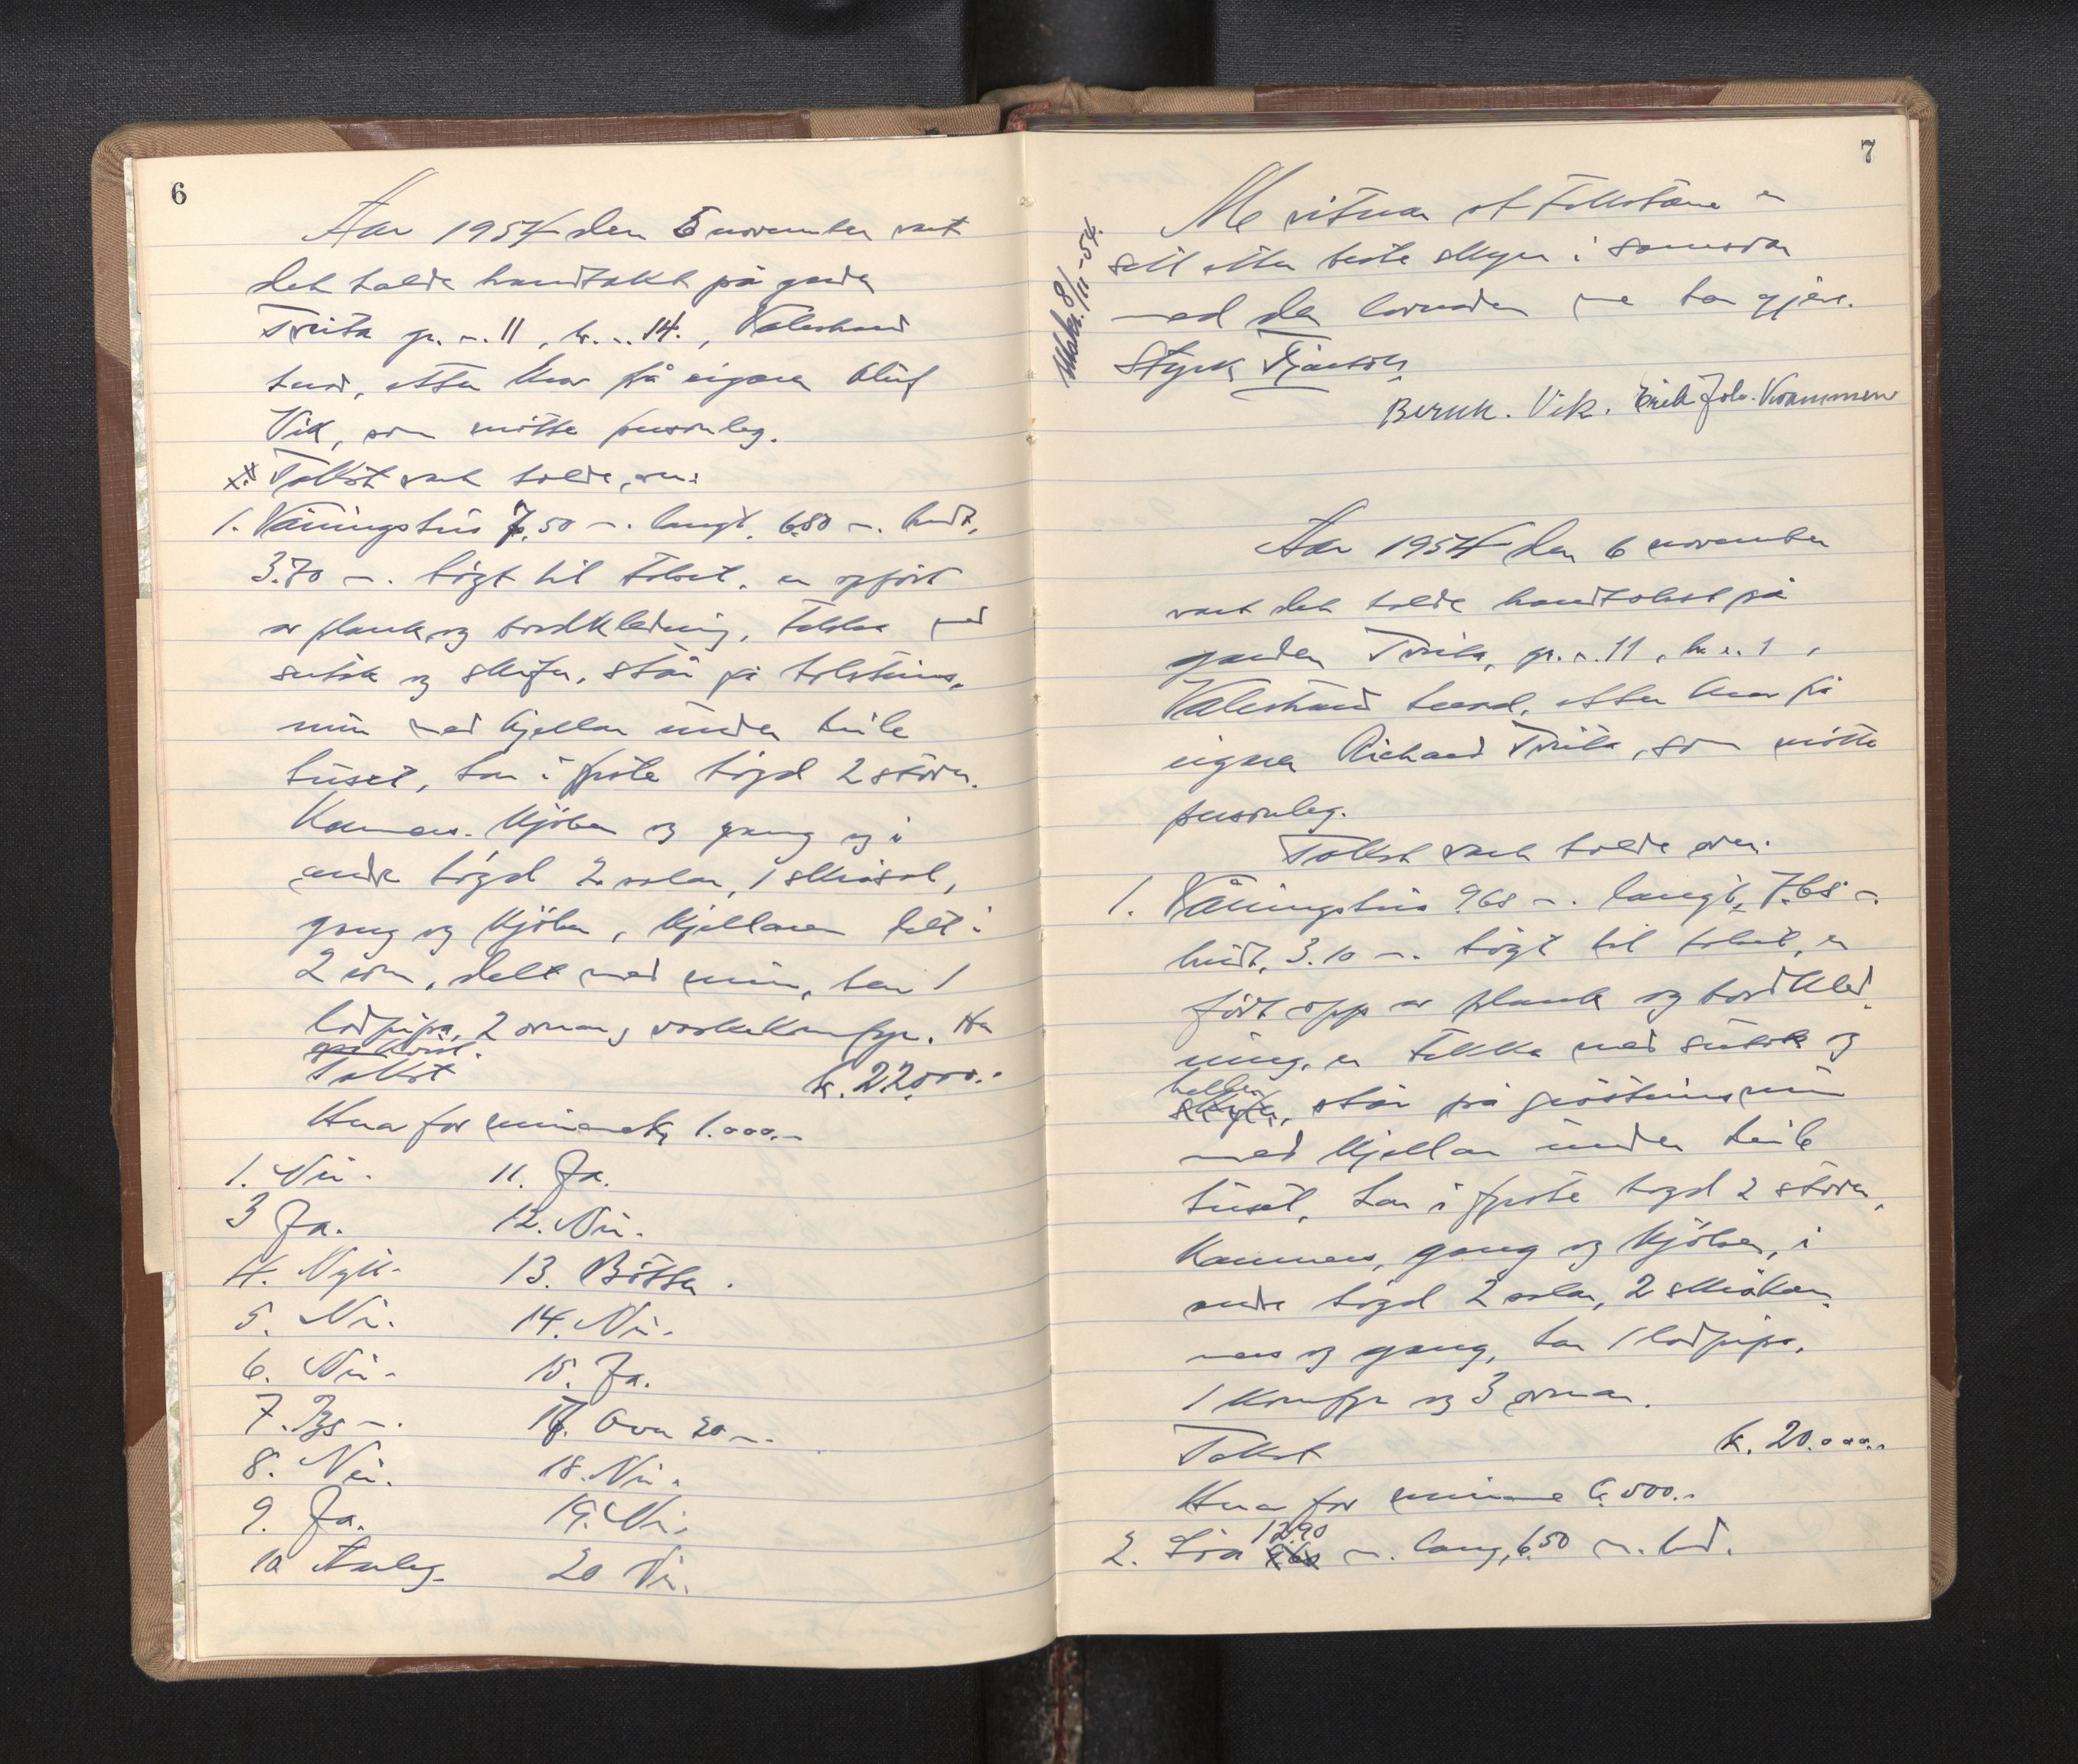 6
Aar 1954 den 5 november vart
det halde branntakst på garden
Tveita gr. n. 11, br. n. 14., Valestrand
herad, etter krav frå eigaren Oluf
Vik, som møtte personleg.
Takst vart halde over:
1. Våningshus 7,50 m. langt, 6.80 m. breidt,
3.70 m. högt til tolvet, er oppfört
av plank og bordkledning, tekka med
sutak og skifer, står på holsteins-
mur med kjellar under heile
huset, har i fyrste högd 2 stover.
Kammers. Kjöken og gang og i
andre högd 2 salar, 1 skråsal,
gang og kjöken, kjellaren delt i
2 rom, delt med mur, har 1
lodpipa, 2 omnar, vaskekomfyr. Har
Takst k. 22.000.-
Herav for murane k. 1.000.-
1. Nei. 11. Ja.
3 Ja. 12. Nei.
4. Nytt. 13. Bötter.
5. Nei. 14. Nei.
6. Nei. 15. Ja.
7. m. 17. Over 20 m.
8. Nei. 18. Nei.
9. Ja. 19. Nei.
10 Aarleg. 20 Nei.
7
Me vitnar at takstane er
sett etter beste skjyn i samsvar
med den lovnaden me har gjeve.
Styrk
Bernh. Vik. Erik Joh. Kvammen
8/11-54.
Aar 1954 den 6 november
vart det halde branntakst på
garden Tveita, gr. n. 11, br. n. 1,
Valestrand herad, etter krav frå
eigaren Richard Tveita, som møtte
personleg.
Takst vart halde over:
1. Våningshus 9.60 m. langt, 7.65 m.
breidt, 3.10 m. högt til tolvet, er
fört opp av plank og bordkled-
ning, er tekka med sutak og
heller
skifer, står på gråsteinsmur
med kjellar under heile
huset, har i fyrste högd 2 stover,
Kammers, gang og kjöken, i
andre högd 2 salar, 2 skråkam-
mers og gang, har 1 lodpipa,
1 komfyr og 3 omnar.
Takst k. 20.000.-
Herav for murane 6.500.-
12.90
2. Löa m. lang, 6.50 m. br.